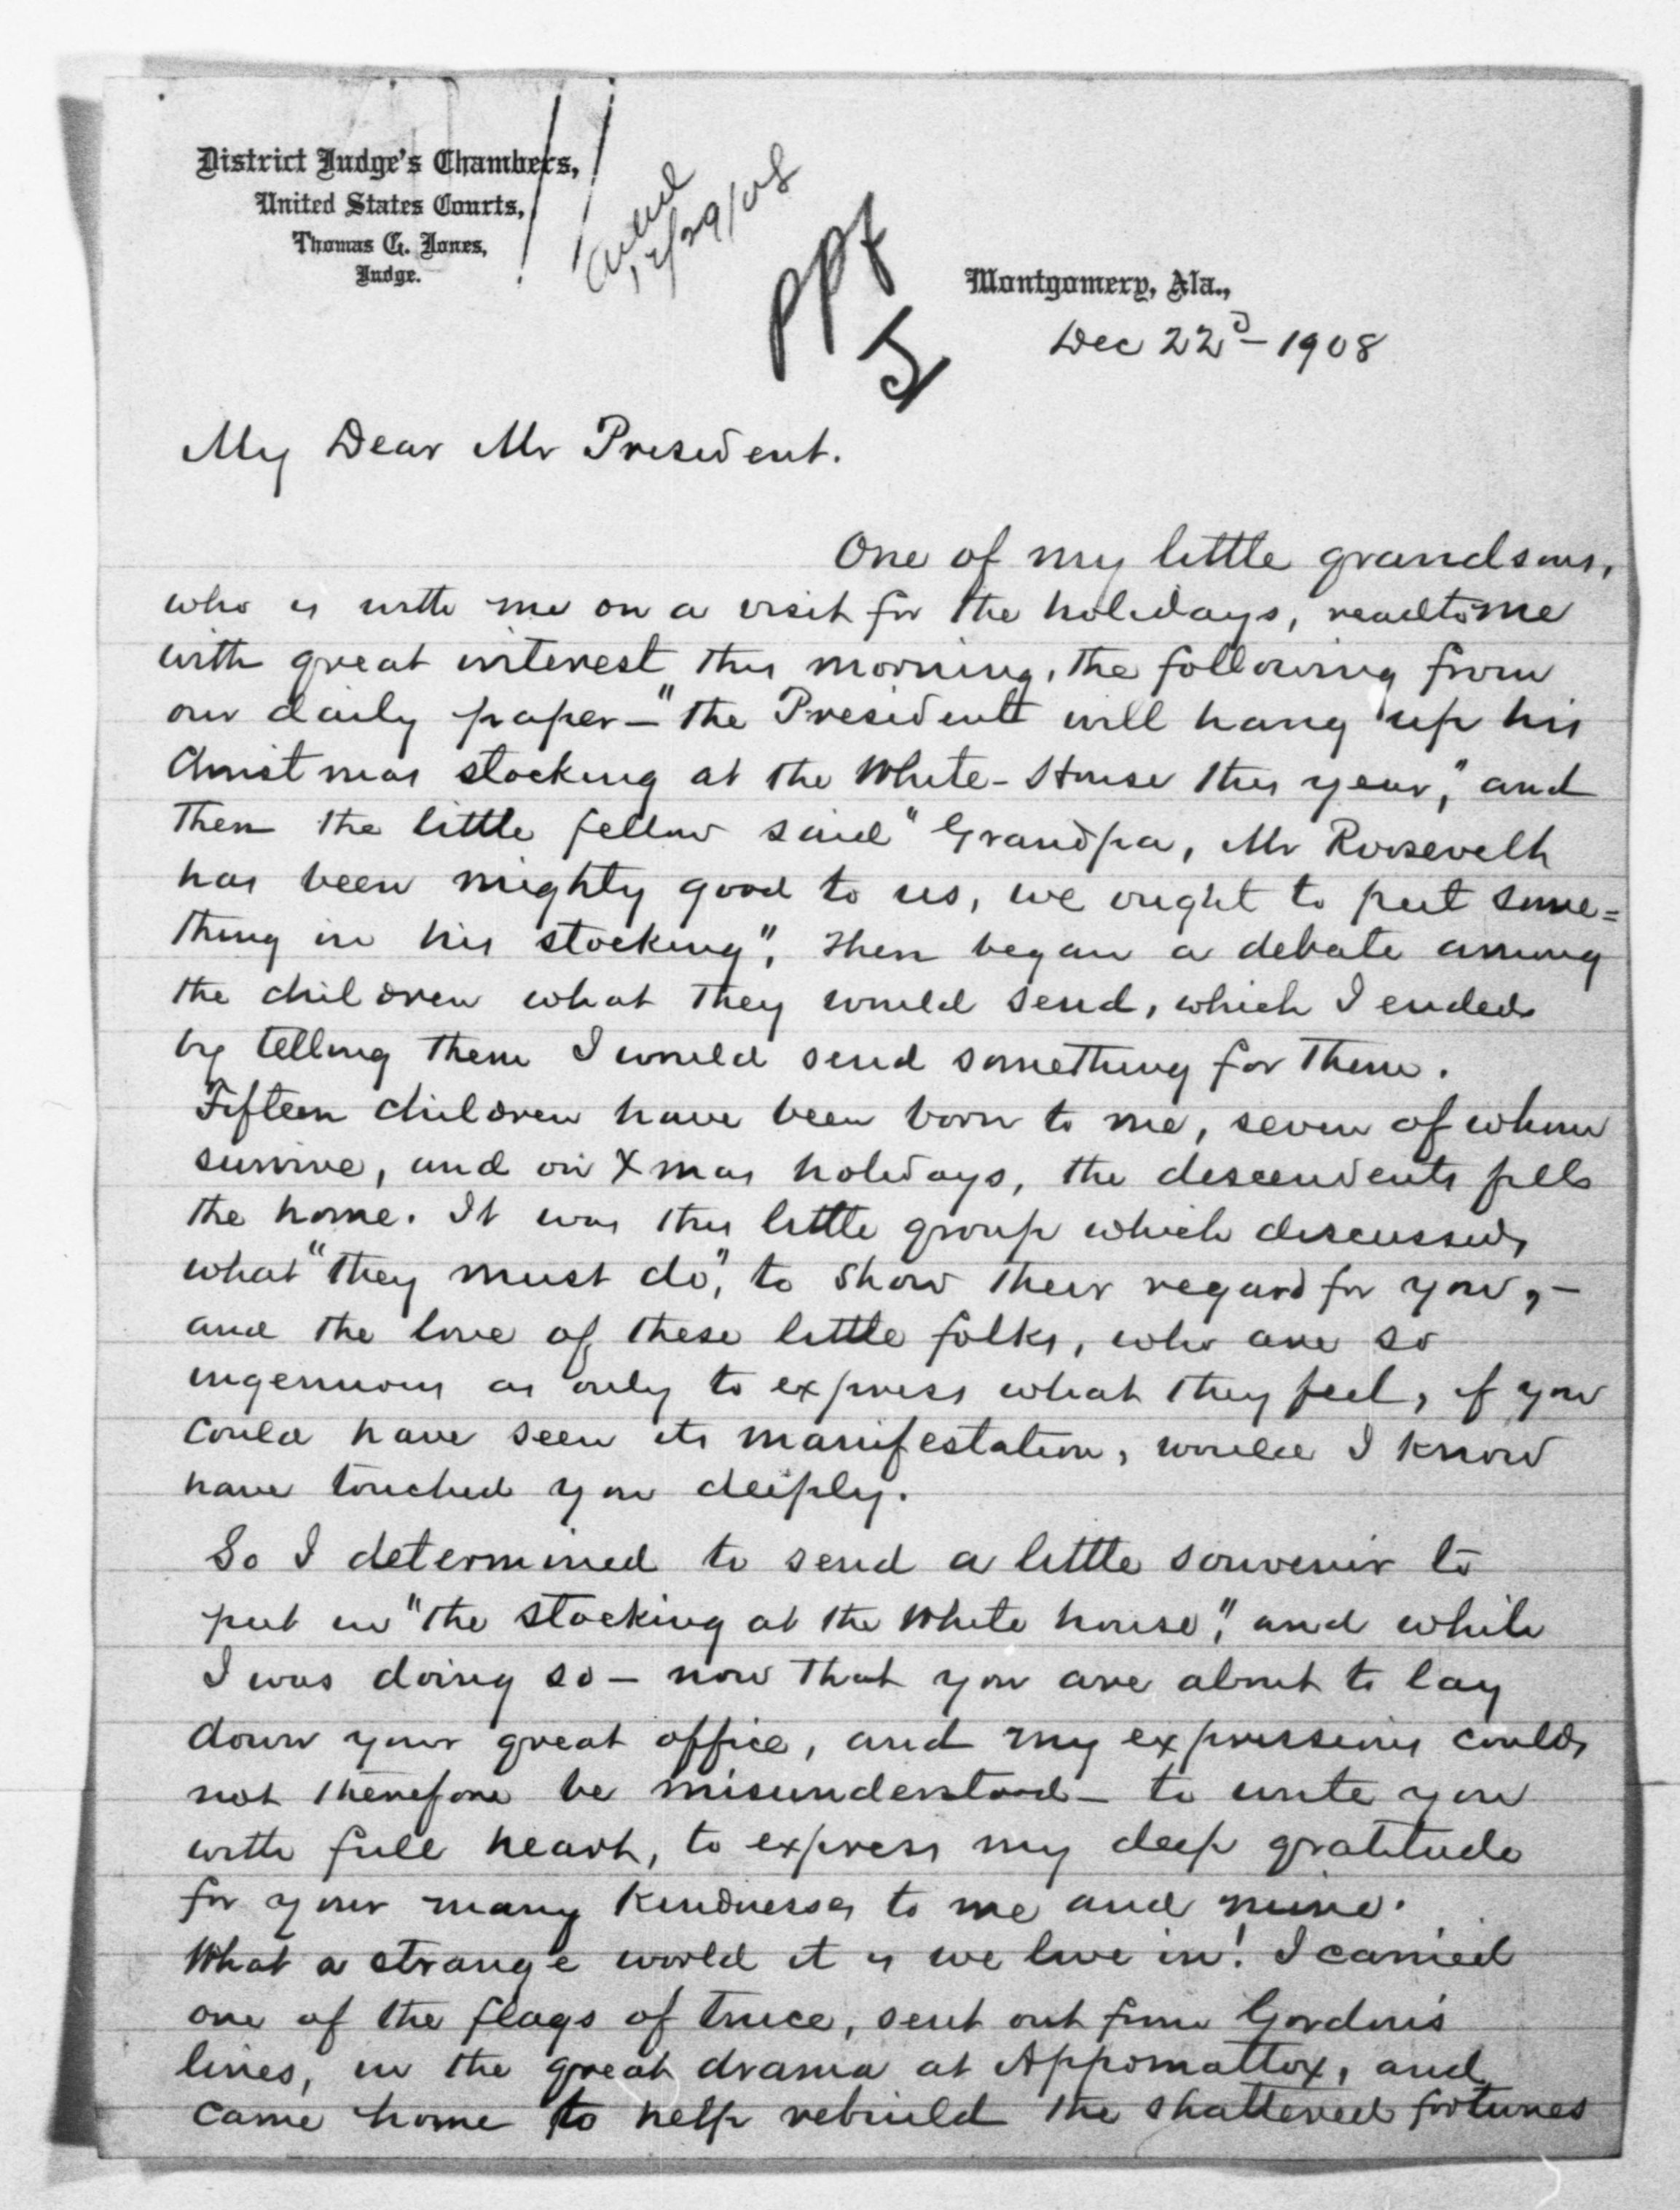 District Judge's Chambers,
United States Courts,
Thomas G. Jones,
Judge.
12/29/08
PPF
J
Montgomery, Ala.,
Dec 22d - 1908
My Dear Mr President.
One of my little grandsons,
who is with me on a visit for the holidays, read to me
with great interest this morning, the following from
our daily paper - "the President will hang up his
Christmas stocking at the White-House this year," and
then the little fellow said "Grandpa, Mr Roosevelt
has been mighty good to us, we ought to put some=
thing in his stocking". Then began a debate among
the children what they would send, which I ended
by telling them I would send something for them.
Fifteen children have been born to me, seven of whom
survive, and on Xmas holidays, the descendents fill
the home. It was this little group which discussed,
what "they must do", to show their regard for you, -
and the love of these little folks, who are so
ingenuous as only to express what they feel, if you
could have seen its manifestation, would I know
have touched you deeply.
So I determined to send a little souvenir to
put in "the stocking at the White house", and while
I was doing so - now that you are about to lay
down your great office, and my expressions could,
not therefore be misunderstood - to write you
with full heart, to express my deep gratitude
for your many kindnesses to me and mine.
What a strange world it is we live in! I carried
one of the flags of truce, sent out from Gordon's
lines, in the great drama at Appomattox, and
came home to help rebuild the shattered fortunes